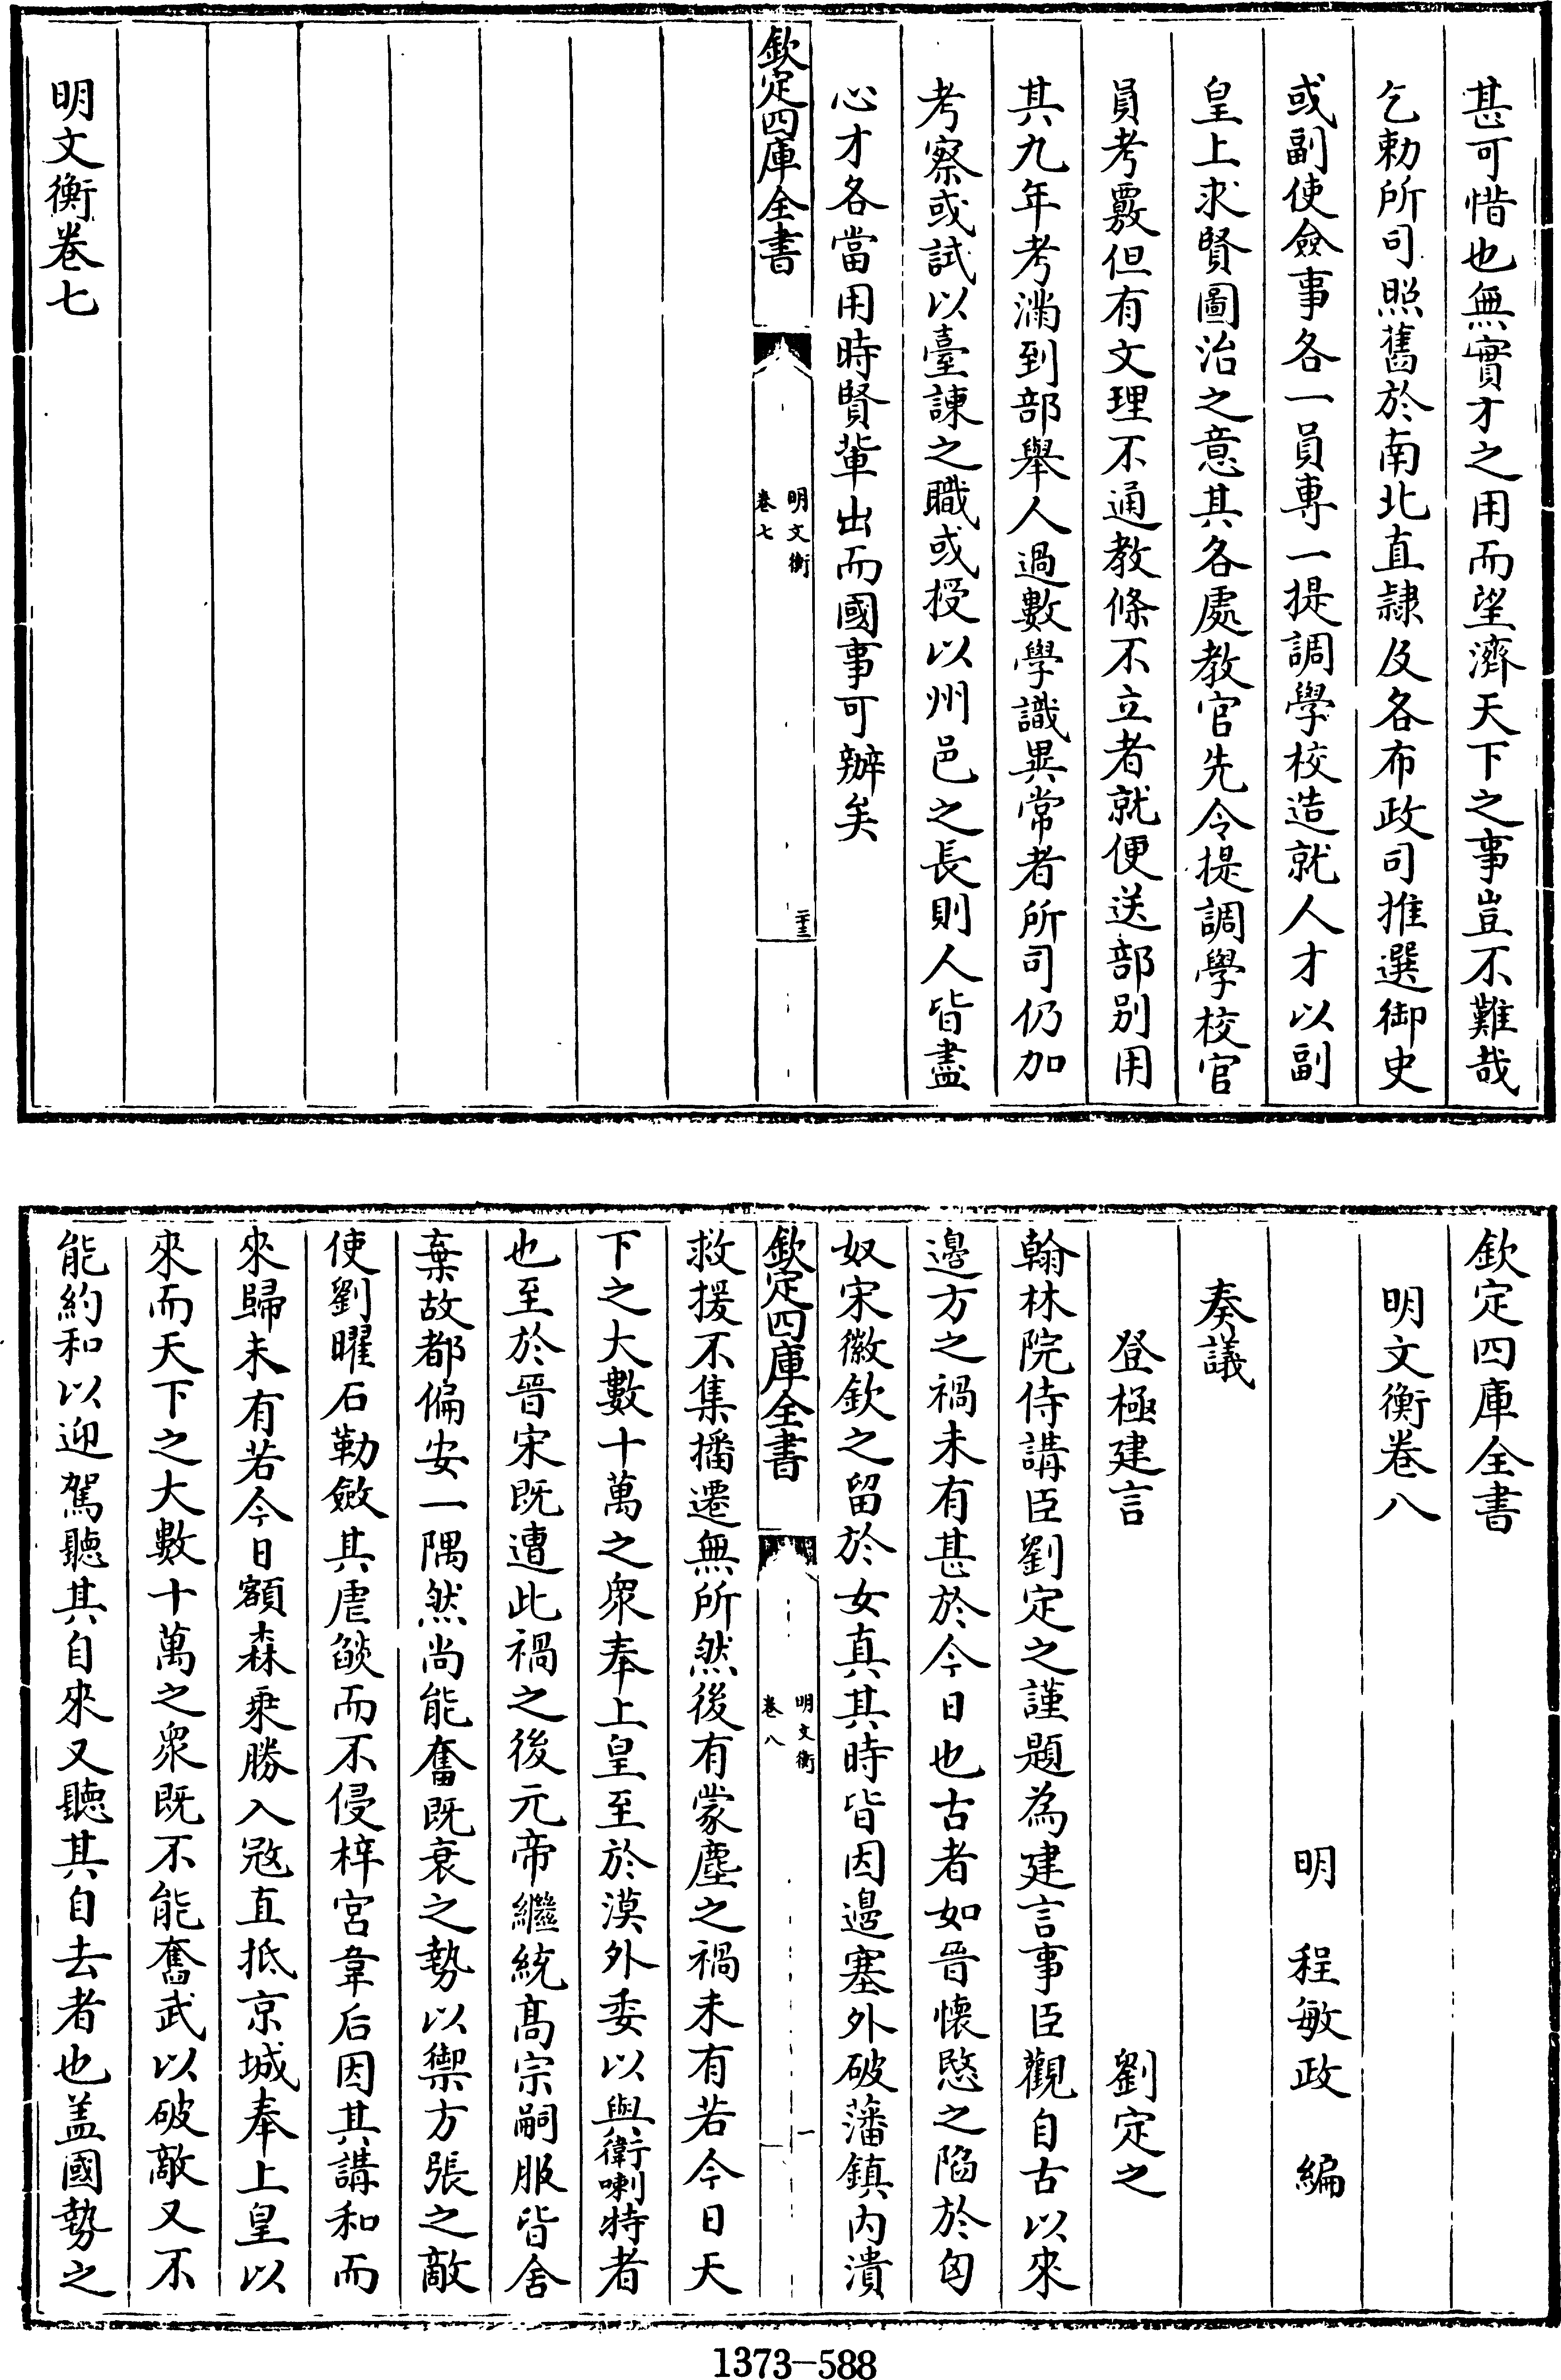 甚可惜也無實才之用而望濟天下之事豈不難哉
乞勅所司照舊於南北直隷及各布政司推選御史
或副使僉事各一員專一提調學校造就人才以副
皇上求賢圖治之意其各處教官先令提調學校官
員考覈但有文理不通教條不立者就便送部别用
其九年考滿到部舉人過數學識異常者所司仍加
考察或試以臺諫之職或授以州邑之長則人皆盡
心才各當用時賢輩出而國事可辦矣
欽定四庫全書
明文衡
卷七
二十三
明文衡卷七
欽定四庫全書
明文衡卷八
明 程敏政 編
奏議
登極建言 劉定之
翰林院侍講臣劉定之謹題為建言事臣觀自古以來
邉方之禍未有甚於今日也古者如晉懷愍之陷於匈
奴宋徽欽之留於女真其時皆因邉塞外破藩鎮内潰
欽定四庫全書
明文衡
卷八
一
救援不集播遷無所然後有蒙塵之禍未有若今日天
下之大數十萬之衆奉上皇至於漠外委以與衛喇特者
也至於晉宋既遭此禍之後元帝繼統髙宗嗣服皆舍
棄故都偏安一隅然尚能奮既衰之勢以禦方張之敵
使劉曜石勒斂其虐燄而不侵梓宮韋后因其講和而
來歸未有若今日額森乗勝入㓂直抵京城奉上皇以
來而天下之大數十萬之衆既不能奮武以破敵又不
能約和以迎駕聽其自來又聽其自去者也盖國勢之
1373—588